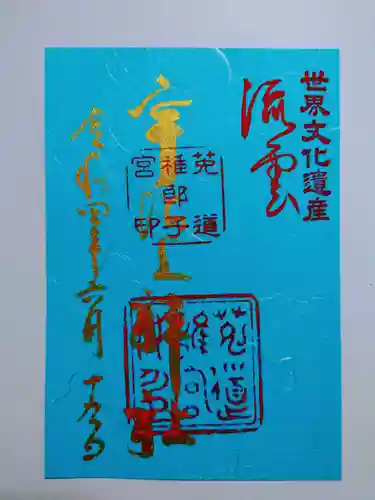 世界文化遺産
流雲
宇治上神社
菟道
稚郎子
宮印
菟道
稚郎
令和四年六月十九日